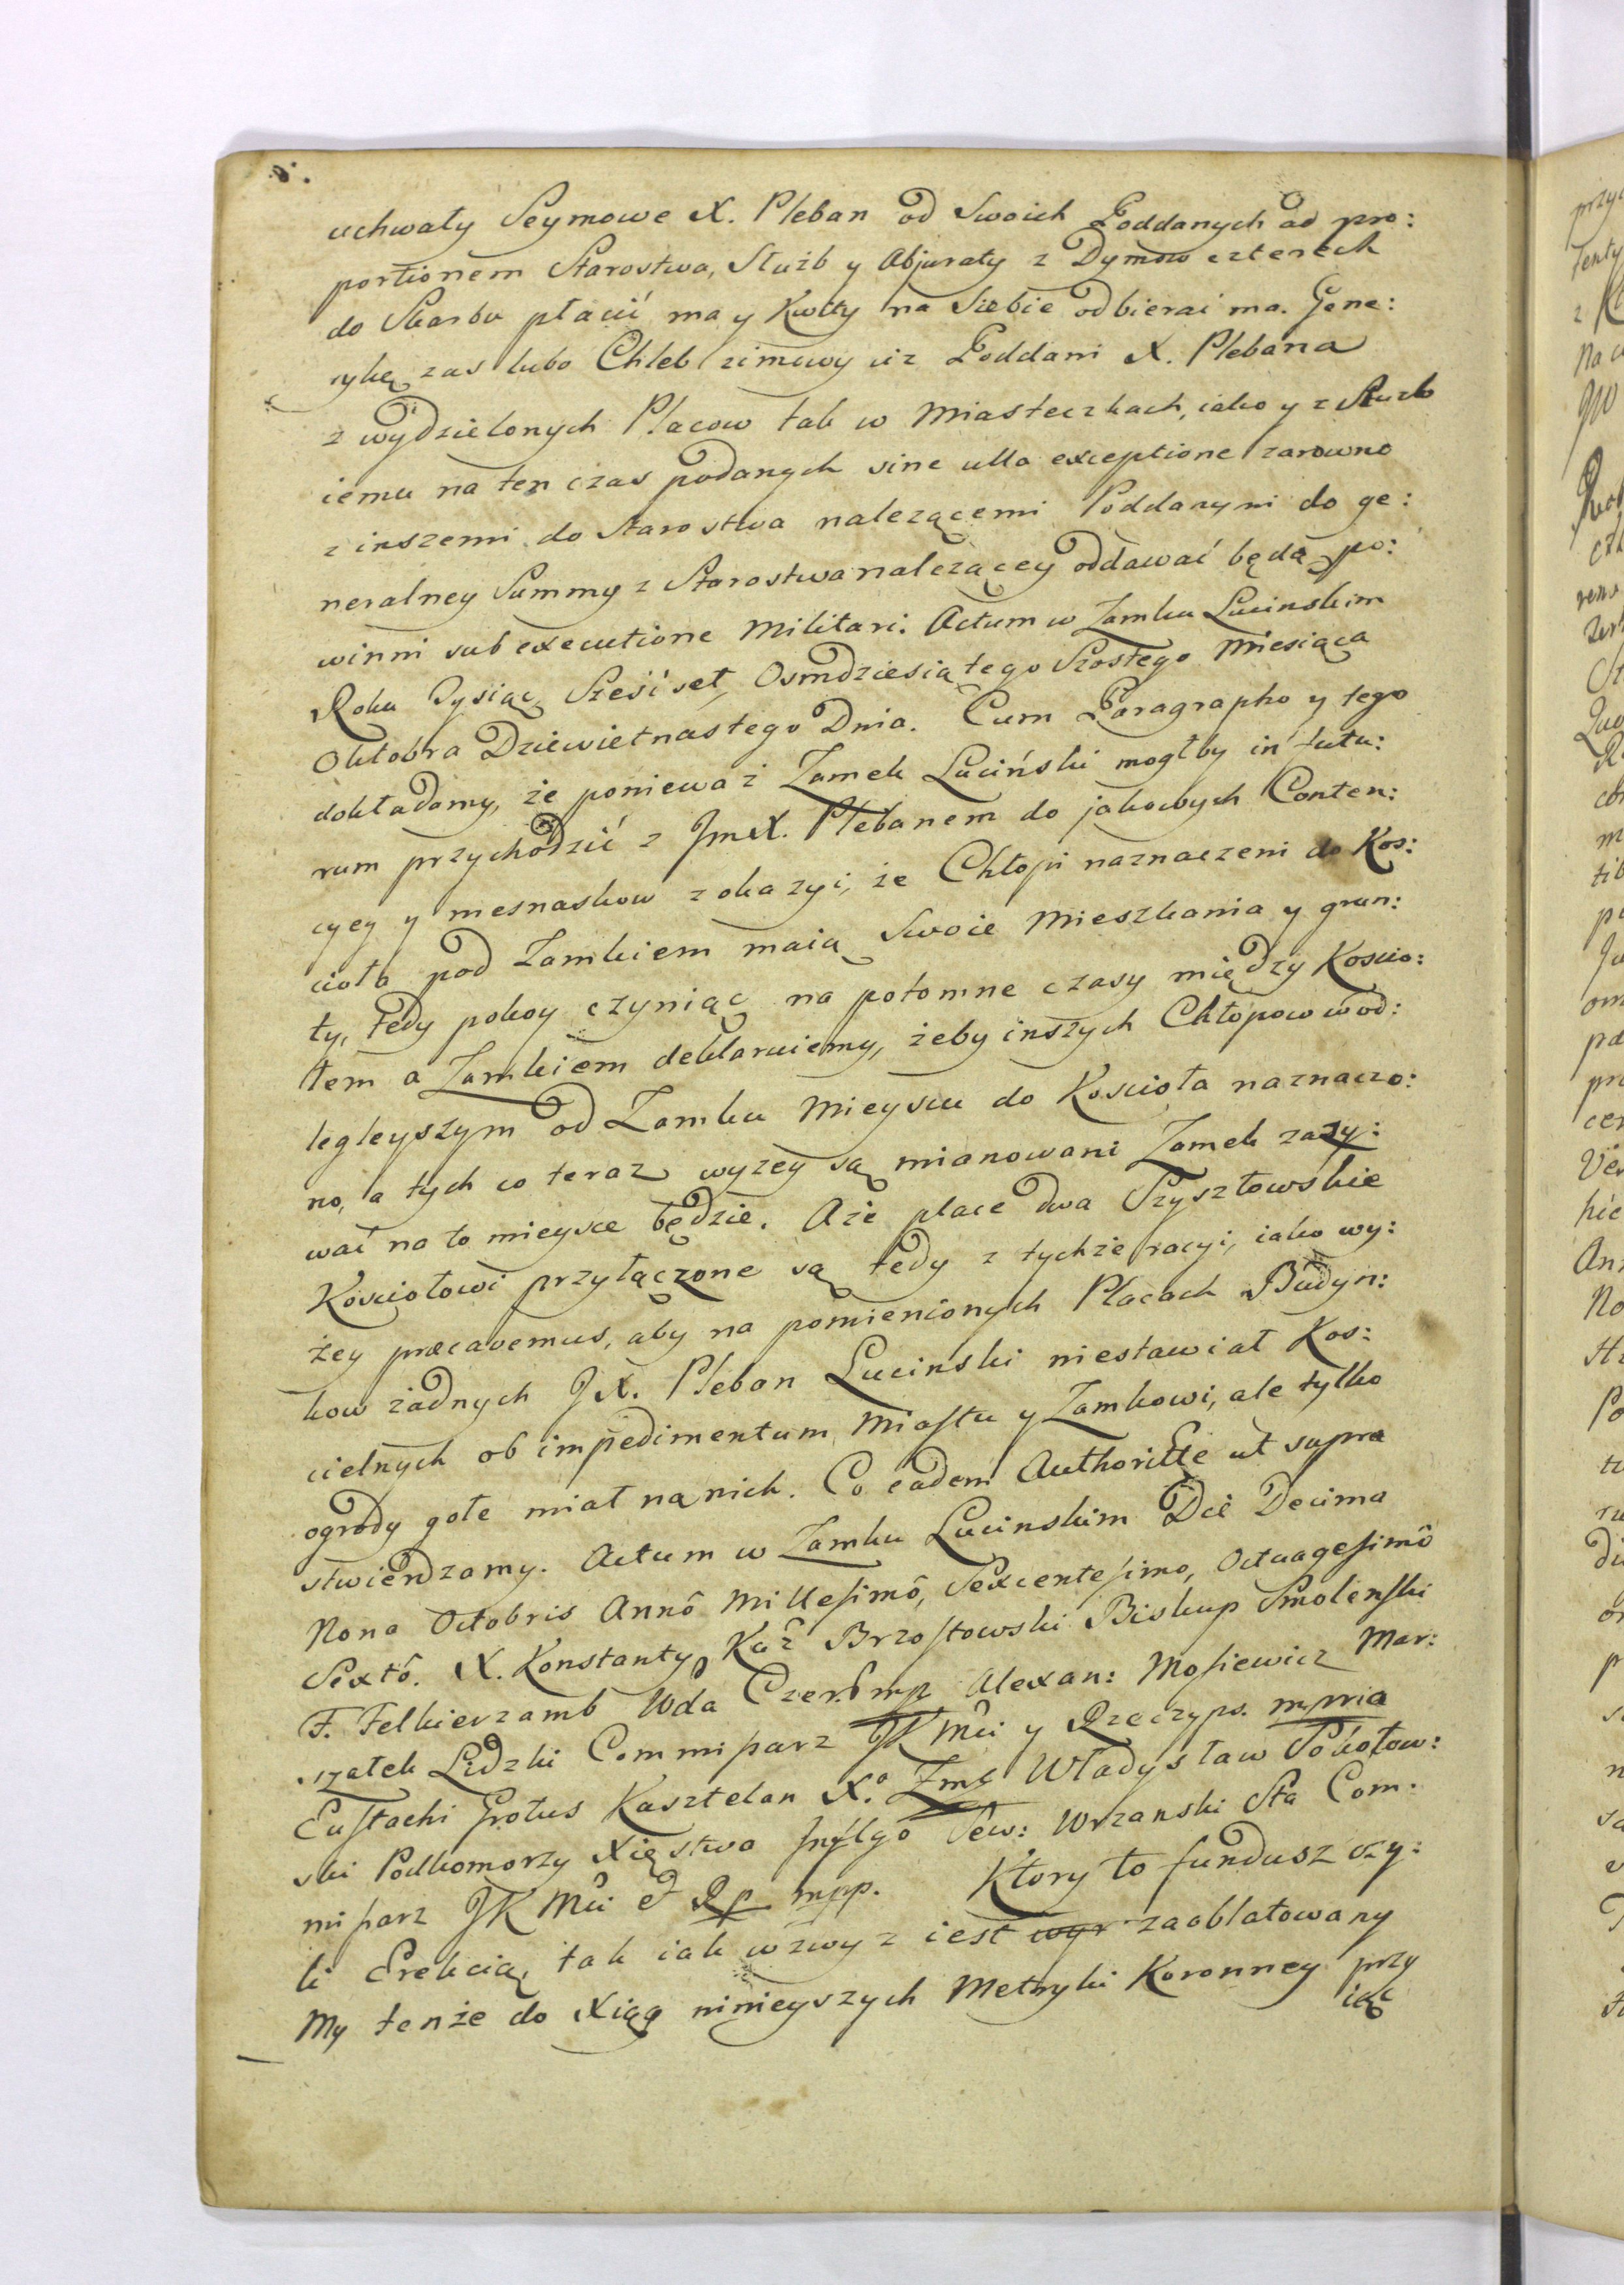 uchwały Seymowe X. Pleban od Swoich Poddanych ad pro:
portionem Starostwa, Służb y Abjuraty z Dymow czterech
do Skarbu płacić ma y Kwitty na Siebie odbierać ma. Gene:
rykę zas lubo Chleb zimowy ciz Poddani X. Plebana
z wydzielonych Placow tak w Miasteczkach, iako y z Służb
iemu na ten czas podanych sine ulla exceptione zarowno
z inszemi do Starostwa nalezącemi Poddanymi do ge:
neralney Summy z Starostwa nalezącey oddawać będą po:
winni sub executione Militari. Actum w Zamku Lucinskim
Roku Tysiąc Sześćset, Osmdziesiątego Szostego Miesiąca
Oktobra Dziewietnastego Dnia. Cum Paragrapho y tego
dokładamy, że ponieważ Zamek Luciński mogłby in futu:
rum przychodzić z JmX. Plebanem do jakowych Conten:
cyey y niesnaskow z okazyi, że Chłopi naznaczeni do Kos:
cioła pod Zamkiem maią Swoie Mieszkania y grun:
ty, tedy pokoy czyniąc na potomne czasy między Koscio:
łem a Zamkiem deklaruiemy, żeby inszych Chłopow w od:
legleyszym od Zamku Mieyscu do Kościoła naznaczo:
no, a tych co teraz wyzey są mianowani Zamek zazy:
wał na to mieysce będzie. Aże place dwa Szysztowskie
Kosciołowi przyłączone są tedy z tychże racyi, iako wy:
żey præcavemus, aby na pomienionych Placach Budyn:
kow żadnych JX. Pleban Lucinski niestawiał Kos:
cielnych ob impedimentum Miastu y Zamkowi, ale tylko
ogrody gołe miał na nich. Co eadem Authoritte ut supra
stwierdzamy. Actum w Zamku Lucinskim Die Decima
Nona Octobris Annô Millesimô, Sexcentesimo, Octuagesimô
Sextô. X. Konstanty Kaz Brzostowski Biskup Smolenski
F. Felkierzamb Wda Czer: mp Alexan: Mosiewicz Mar:
szałek Lidzki Commisarz JK Mci y Rzeczyps. mpria
Eustachi Grotus Kasztelan X. Zmc Władysław Sokołow:
ski Podkomorzy Xięstwa Sew: Wrzanski Sta Com:
misarz JK Mci et Rp mpp. Ktory to fundusz czy:
li Erekcią, tak iak wzwyz iest wyr zaoblatowany
My tenże do Xiąg ninieyszych Metryki Koronney przy
iąć